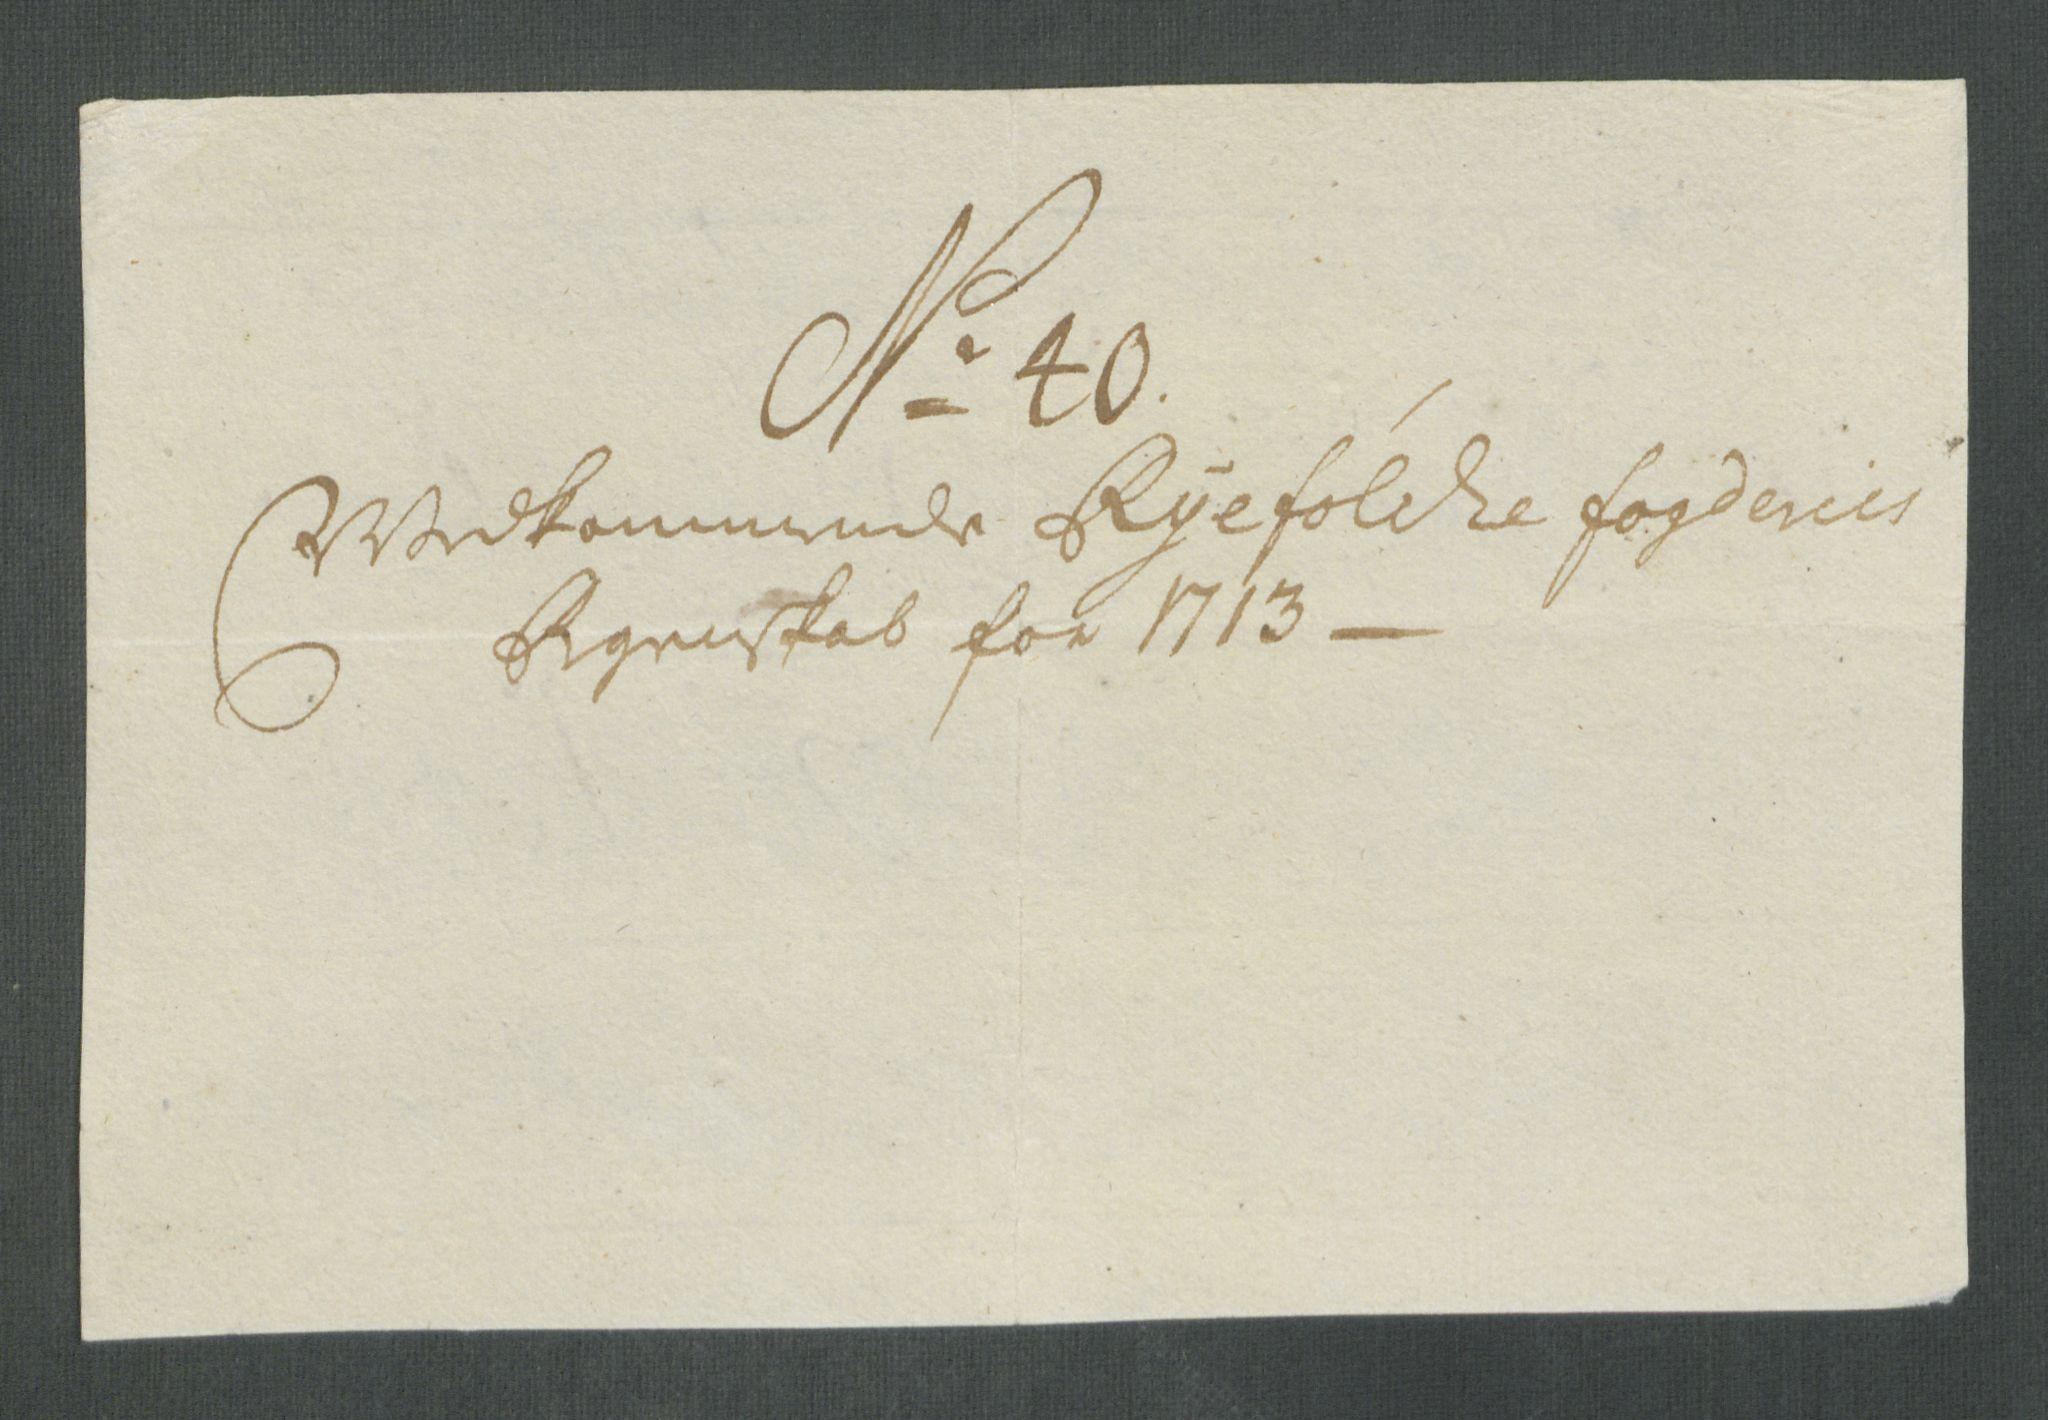 No 40.
Vedkommende Ryefolche fogderies
Regenskab for 1713 —